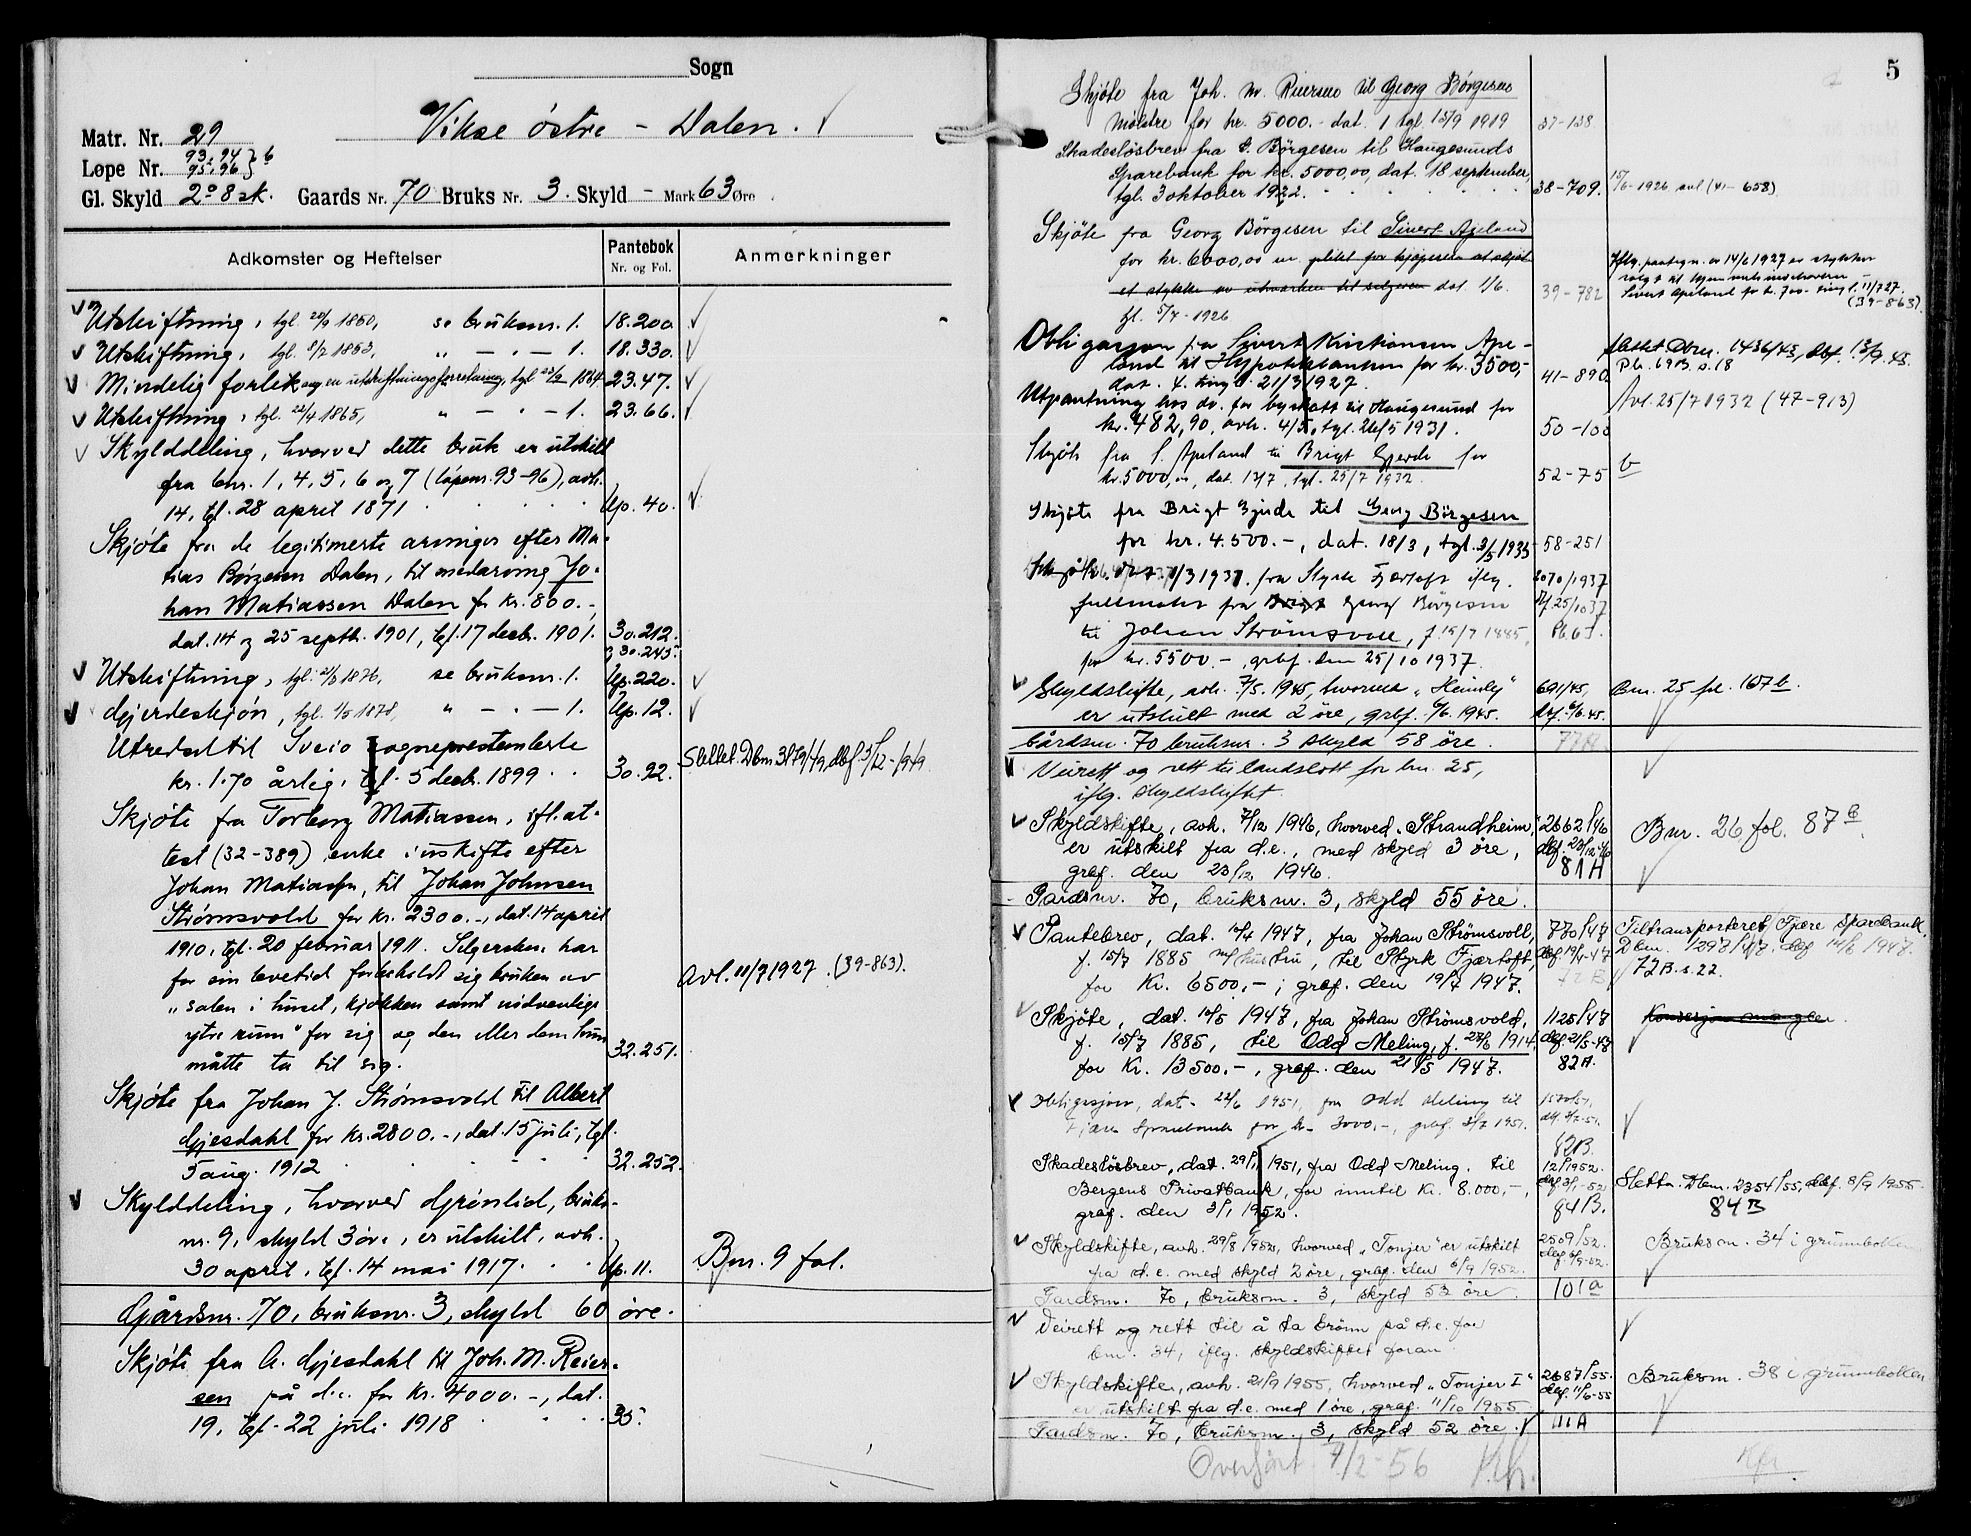 Sogn
Vikse östre - Dalen.
Matr. Nr. 29
Løpe Nr. 93, 94 95, 96 } b
Gl. Skyld 2 ° 8 sk. Gaards Nr. 70 Bruks Nr. 3. Skyld - Mark 63 Øre
Adkomster og Heftelser Pantebok Nr. og Fol. Anmerkninger
Utskiftning, tgl. 1860, se bruksnr. 1. 18.200.
Utskiftning, tgl. 8/7 1863, „ - „ - 1. 18.330.
Mindelig forlik og en utskiftningsforretning, tgl 1864 23.47.
Utskiftning, tgl. 22/4 1865, „ - „ - 1. 23.66.
Skylddeling, hvorved dette bruk er utskilt
fra bnr. 1, 4, 5, 6 og 7 (löpenr. 93-96), avh.
14, tgl. 28 april 1871 Up. 40.
Skjöte fra de legitimerte arvinger efter Ma-
tias Börgesen Dalen, til medarving Jo-
han Matiassen Dalen for kr. 800.-,
dat. 14 og 25 septb. 1901, tgl. 17 decb. 1901. 30.212.
g 30.245.
Utskiftning, tgl. 1876, se bruksnr. 1. Up. 220.
Gjerdeskjön, tgl. 1/5 1878, „ - „ - 1. Up. 12.
Utredsel til Sveio sogneprestembede
kr. 1.70 årlig, tgl. 5 decb. 1899 30.92. Slettet. Dbm 3179/49, dbf. 3/12-1949
Skjöte fra Torborg Matiassen, ifl. at-
test (32-389) enke i uskifte efter
Johan Matiassen, til Johan Johnsen
Strömsvold for kr. 2300.-, dat. 14 april
1910, tgl. 20 februar 1911. Selgersken har
for sin levetid forbeholdt sig bruken av
„salen i huset, kjökken samt nödvendige
ytre rum" for sig og den eller dem hun
måtte ta til sig. 32.251.
Avl. 11/7 1927. (39-863).
Skjöte fra Johan J. Strömsvold til Albert
Gjesdahl for kr. 2800.-, dat. 15 juli, tgl.
5 aug. 1912 32.252.
Skylddeling, hvorved Grönlid, bruks-
nr. 9, skyld 3 öre, er utskilt, avh.
30 april, tgl. 14 mai 1917. Up. 11. Bnr. 9 fol.
Gårdsnr. 70, bruksnr. 3, skyld 60 öre.
Skjöte fra A. Gjesdahl til Joh. M. Reier-
sen på d.e. for kr. 4000.-, dat.
19, tgl. 22 juli 1918 35.
5
Skjöte fra Joh. M. Reiersen til Georg Börgesen
Molstre for kr. 5000.- dat. 1 tgl. 15/9 1919 37-138
Skadeslösbrev fra G. Börgesen til Haugesunds
Sparebank for kr. 5000,00, dat. 18 september,
tgl. 3 oktober 1922. 38-709. 15/6-1926 avl (41-658)
Skjöte fra Georg Börgesen til Sivert Apeland
for kr. 6000,00 m. pliktt for kjöperen at skjöt
et stykke av utmarken til selgeren dat. 1/6.
tgl. 5/7-1926 39-782
Iflg. paategn. av 14/6 1927 er stykket
solgt til hjemmelsindehaveren
Sivert Apeland for kr. 700.- tingl. 11/7 27.
(39-863).
Obligasjon fra Sivert Kristiansen Ape-
land til Hypotekbanken for kr. 3500,-
dat. 4. tingl. 21/3 1927. 41-890. slettet Dbnr. 1436/43, dbf. 13/9.43.
Pb. 69B. s. 18
Utpantning hos do. for byskatt til Haugesund for
kr. 482,90, avh. 4/5, tgl. 26/5 1931. 50-100 Avl. 25/7 1932 (47-913)
Skjöte fra S. Apeland til Brigt Gjerde for
kr. 5000,00, dat. 13/7, tgl. 25/7 1932. 52-75
Skjöte fra Brigt Gjerde til Georg Börgesen
for kr. 4.500.-, dat. 18/3, tgl. 3/5 1935 58-251
Skjöte 1/3 1937. fra Styrk Fjærtoft iflg. 2070/1937
fullmakt fra Brigt Georg Börgesen Dbf. 25/10 37
til Johan Strömsvold, f. 15/7 1885, Pb. 63.
for kr. 5500.-, grbf. den 25/10 1937.
Skyldskifte, avh. 7/5. 1945, hvorved „Heimly" 691/45, Bnr. 25 fol. 167b.
er utskilt med 2 öre, grbf. 6/6. 1945. dbf. 6/6. 45.
Gårdsnr. 70 bruksnr. 3 skyld 58 öre. 77A
Veirett og rett til landslott for bnr. 25,
iflg. skyldskiftet.
Skyldskifte, avh. 7/12 1946, hvorved „Strandheim" 2662/46 Bnr. 26 fol. 87 B.
er utskilt fra d.e., med skyld 3 öre, dbf. 23/12-46
graf. den 23/12 1946. 81A
Gardsnr. 70, bruksnr. 3, skyld 55 öre.
Pantebrev, dat. 14/4 1947, fra Johan Strömsvoll, 770/47 Tiltransporteret Fjære Sparebank.
f. 15/7 1885 m/hustru, til Styrk Fjærtoft, dbf. 19/4-47 Dbnr. 1297/47. dbf 1947.
for kr. 6500,-, graf. den 19/4 1947. 72B 72B. s. 22.
Skjöte, dat. 10/5 1947, fra Johan Strömsvold, 1125/47 Konsesjon mangler.
f. 15/7 1885, til Odd Meling, f. 1914, dbf. 21/5-47
for kr. 13500.-, graf. den 21/5 1947. 82A.
Obligasjon, dat. 22/6 1951, fra Odd Meling til
Fjære Sparebank for kr 3000.-, graf. 3/7 1951.
82B.
Skadeslösbrev, dat. 29/ 1951, fra Odd Meling. til 12/1952.
Bergens Privatbank, for inntil kr. 8.000,-, dbf 3/1-52 Slettn. Dbnr. 2354/55, dbf. 8/9 1955.
graf. den 3/1 1952. 84B. 84 B
Skyldskifte, avh. 29/8 1952, hvorved „Tonjer" er utskilt 2509/52. Bruksnr. 34 i grunnboken
fra d.e. med skyld 2 öre, graf. den 6/9 1952. dbf. 6/9-52.
Gardsnr. 70, bruksnr. 3, skyld 53 öre. 101a
Veirett og rett til å ta brönn på d.e. for
bnr. 34, iflg. skyldskiftet foran
Skyldskifte, avh. 21/9 1955, hvorved „Tonjer I" 2687/55. Bruksnr. 38 i grunnboken
er utskilt fra d.e. med 1 öre, graf. 11/10 1955
Gardsnr. 70, bruksnr. 3, skyld 52 öre. 111A
Overfört 7/2-56